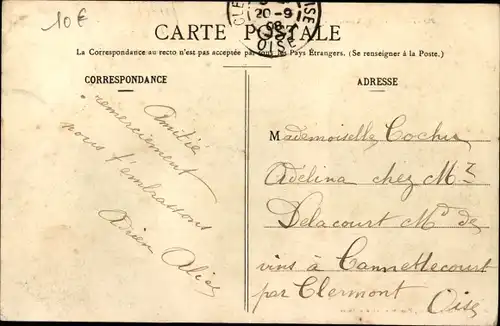 10€
20-9
08
OISE
CARTE POSTALE
La Correspondance au recto n'est pas acceptée par tous les Pays Étrangers. (Se renseigner à la Poste.)
CORRESPONDANCE
Amitié
remerciement
nous t'embrassons
ADRESSE
Mademoiselle
Adelina chez Mr
Delacourt Md de
vins à Cannettecourt
par Clermont
Oise